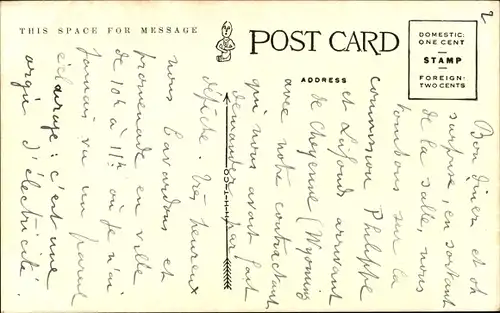 THIS SPACE FOR MESSAGE
POST CARD
ADDRESS
DOMESTIC:
ONE CENT
STAMP
FOREIGN:
TWO CENTS
2
Bon dîner et oh
surprise, en sortant
de la salle nous
tombons sur la
commission Philippe
et Lafonds arrivant
de Cheyenne (Wyoming
avec notre contractant,
qui nous avait fait
demander par
dépêche. Très heureux
nous bavardons et
promenade en ville
de 10h à 11h où je n'ai
jamais vu un pareil
éclairage : c'est une
orgie d'électricité.